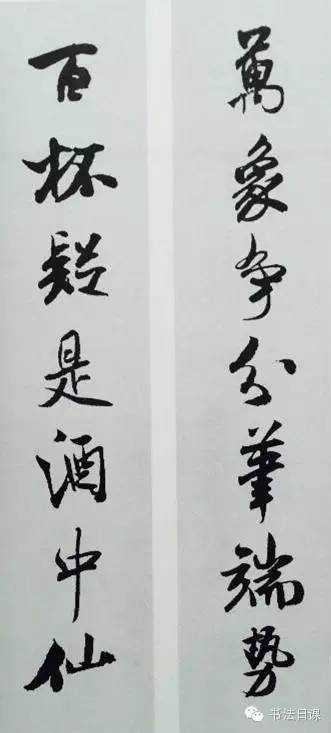 萬象争分筆端勢
百杯疑是酒中仙
书法日课